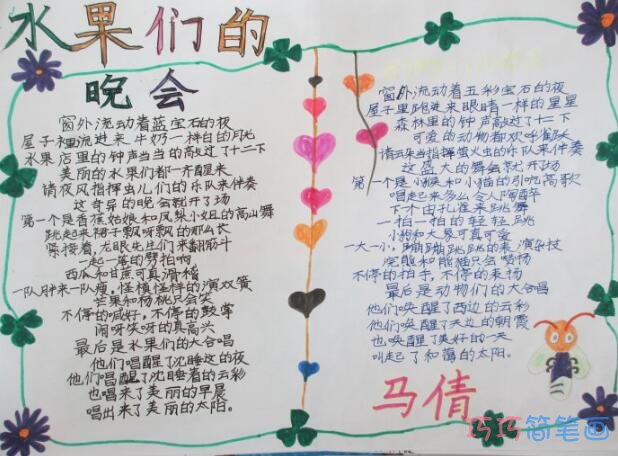 水果们的
晚会
窗外流动着蓝宝石的夜
屋子里流进来牛奶一样白的月光
水果店里的钟声当当的高过了十二下
美丽的水果们都一齐醒来
请夜风指挥虫儿们的乐队来伴奏
这奇异的晚会就开了场
第一个是香蕉姑娘和凤梨小姐的高山舞
跳起来裙子飘呀飘的那么长
紧接着龙眼先生们来翻筋斗
一起一等的劈拍响
西瓜和甘蔗可真滑稽
一队胖来一队瘦,怪模怪样的演双簧
芒果和杨桃只会笑
不停的喊好,不停的鼓掌
闹呀笑呀的真高兴
最后是水果们的大合唱
他们唱醒了沈睡这的夜
他们唱醒了沈睡着的云彩
也唱来了美丽的早晨
唱出来了美丽的太阳。
窗外流动着五彩宝石的夜
屋子里跑进来眼睛一样的星星
森林里的钟声高过了十二下
可爱的动物都欢呼雀跃
请云来当指挥萤火虫的乐队来伴奏
这盛大的舞会就开场
第一个是小猴和小猫的引吭高歌
唱起来多么令人陶醉
下来由孔雀来跳舞
一拍一拍的轻轻跳
小狗和大象可真可爱
一大一小,蹦蹦跳跳的来演杂技
笑熊和熊猫只会赞扬
不停的拍手,不停的表扬
最后是动物们的大合唱
他们唤醒了西边的云彩
他们唤醒了天边的朝霞
也唤醒了美好的一天
叫起了和蔼的太阳。
马倩
巧巧简笔画